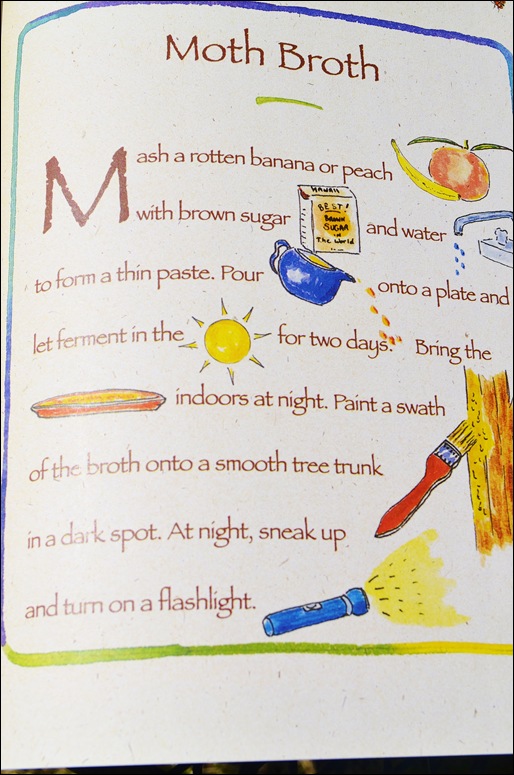 Moth Broth
Mash a rotten banana or peach
with brown sugar
HAWAII
BEST!
BROWN
SUGAR
IN
The World
and water
to form a thin paste. Pour
onto a plate and
let ferment in the
for two days.
Bring the
indoors at night. Paint a swath
of the broth onto a smooth tree trunk
in a dark spot. At night, sneak up
and turn on a flashlight.